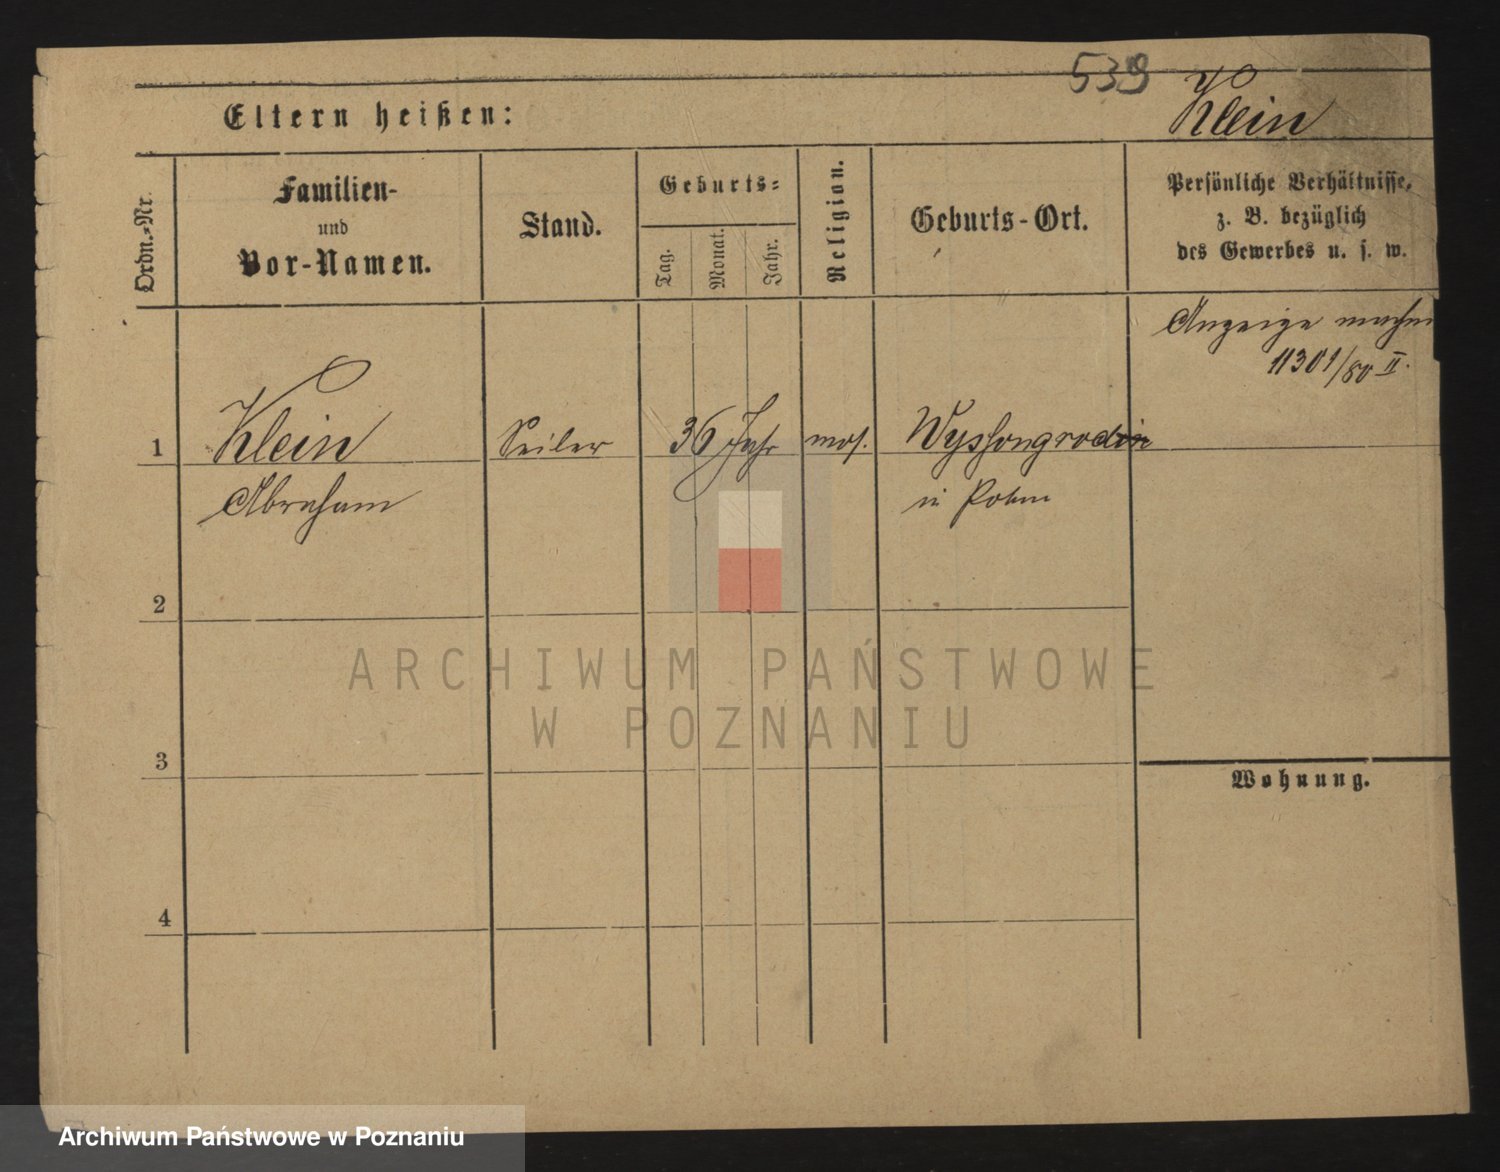 539
Klein
Eltern heißen:
Ordn.-Nr.
Familien-
und
Vor-Namen.
Stand.
Geburts-
Tag.
Monat.
Jahr.
Religion.
Geburts-Ort.
Persönliche Verhältnisse,
z. B. bezüglich
des Gewerbes u. s. w.
Anzeige machen
11301/80 II.
1
Klein
Abraham
Seiler
36 Jahr
mos.
in Polen
2
3
4
Wohnung.
ARCHIWUM PAŃSTWOWE
W POZNANIU
Archiwum Państwowe w Poznaniu